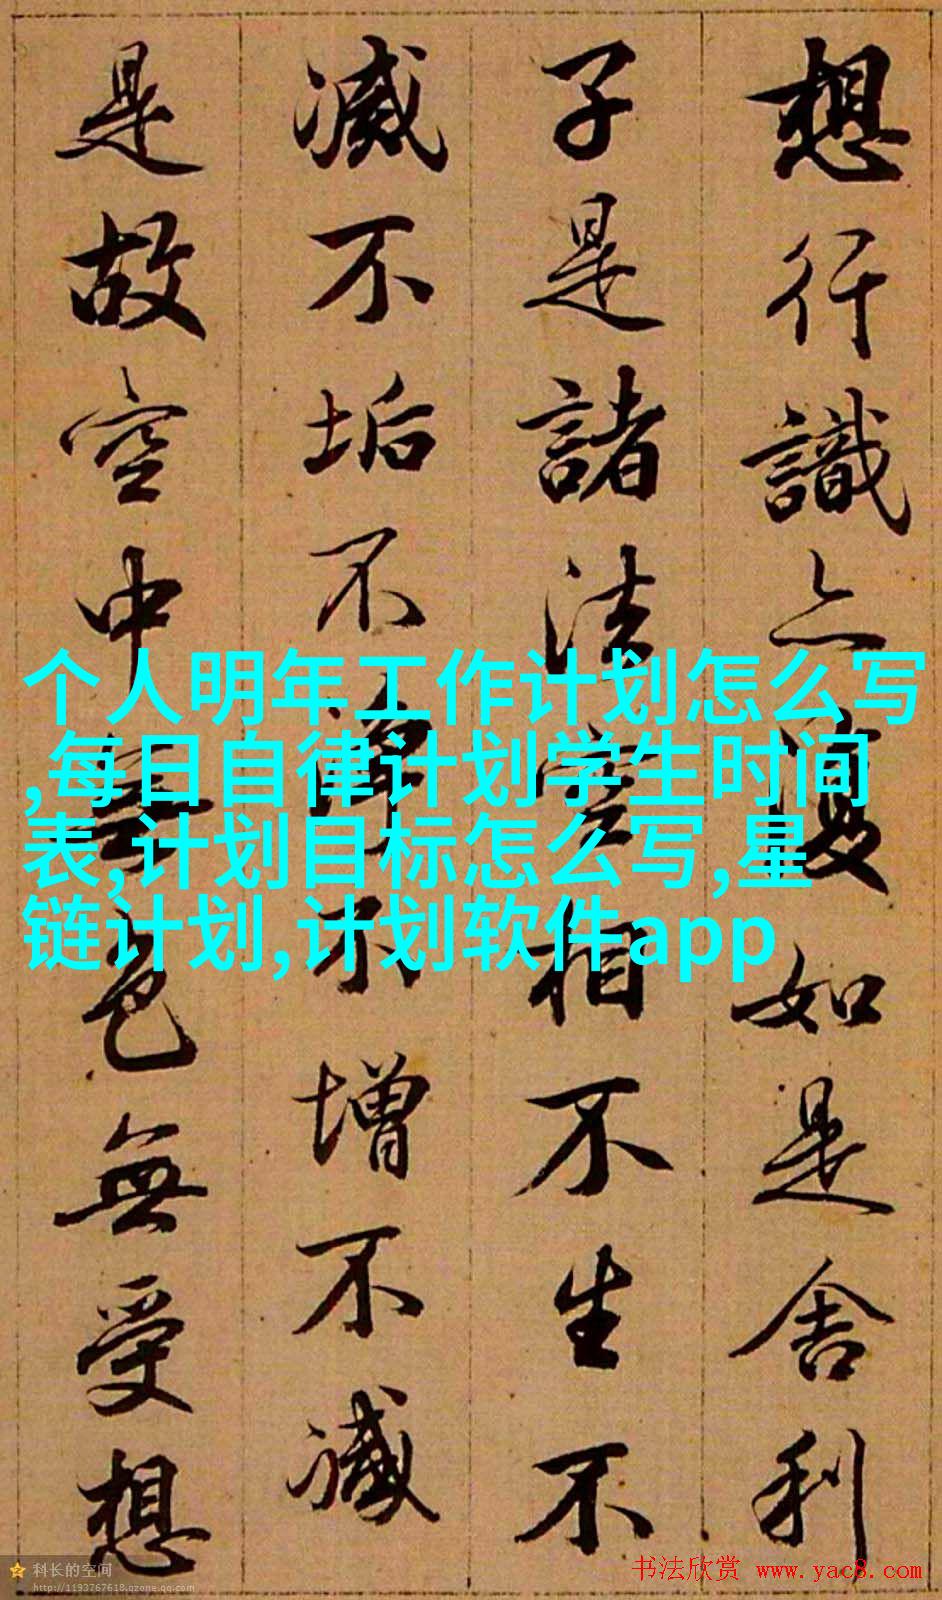 想行識亦復如是舍利
子是諸法空相不生不
滅不垢不淨不增不減
是故空中無色無受想
个人明年工作计划怎么写
,每日自律计划学生时间
表,计划目标怎么写,星
链计划,计划软件app
科长的空间
http://1193767618.qzone.qq.com
书法欣赏 www.yac8.com